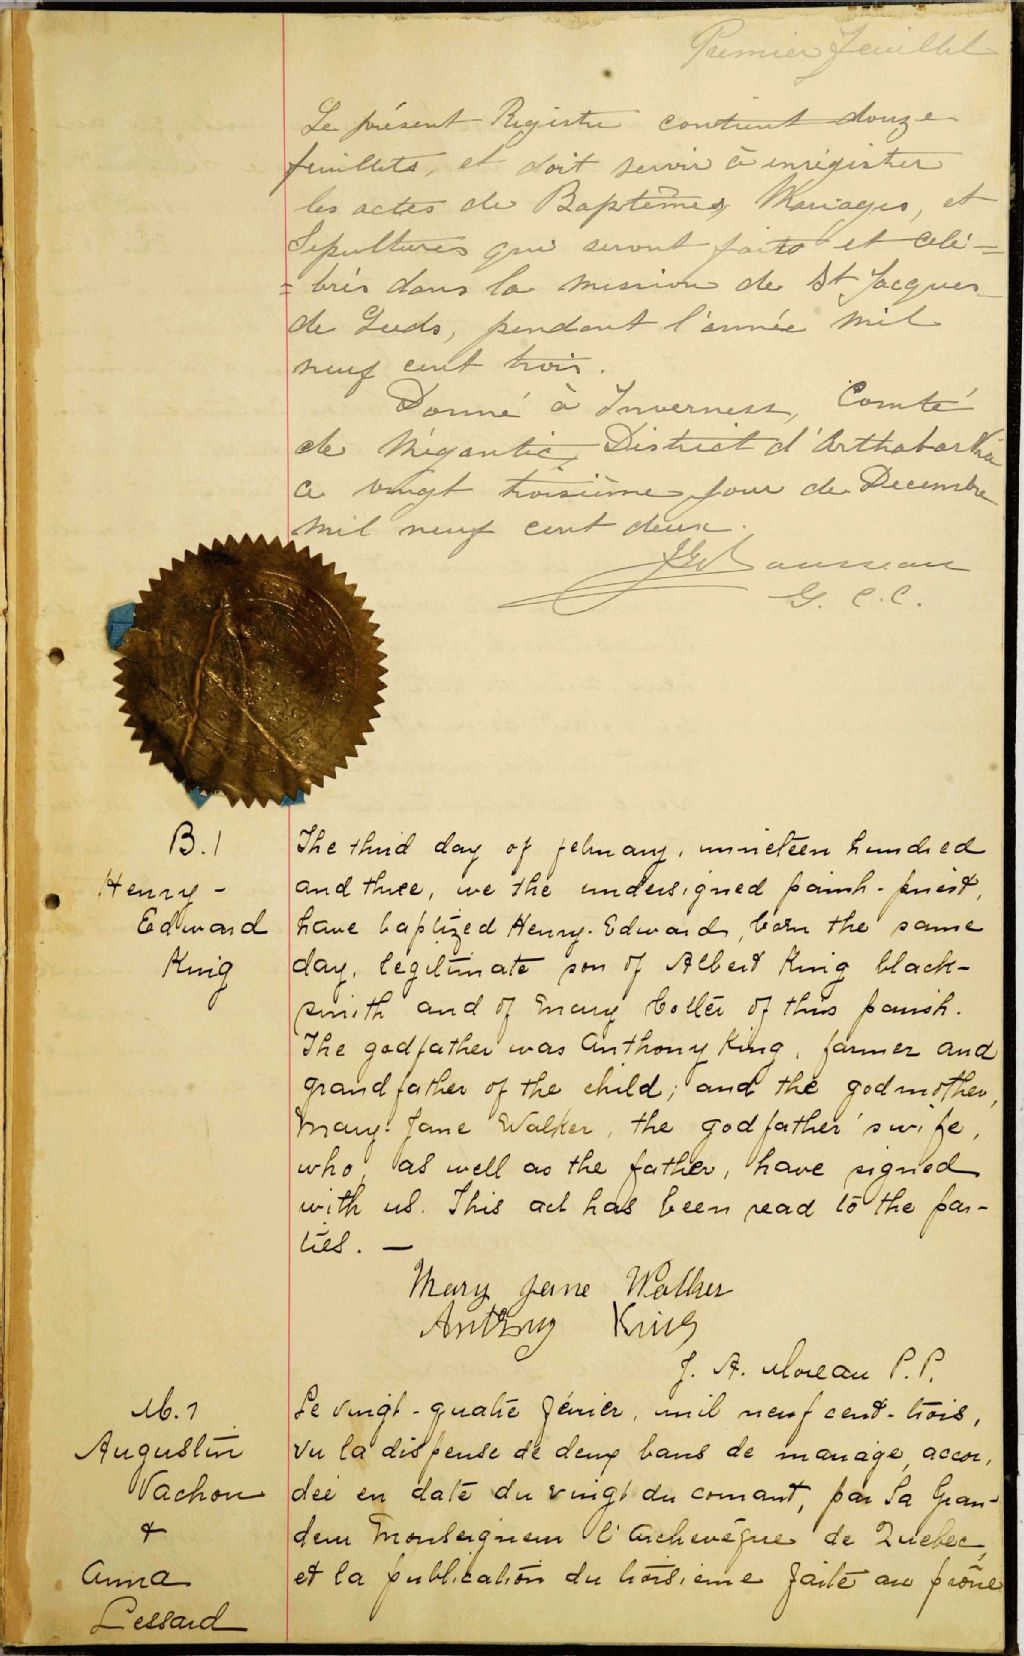 Premier feuillet
Le présent Registre contient douze
feuillets, et doit servir à enrégistrer
les actes de Baptêmes, Mariages, et
Sépultures qui seront faits et célé=
=brés dans la mission de St Jacques
de Leeds, pendant l'année mil
neuf cent trois.
Donné à Inverness, Comté
de Mégantic, District d'Arthabaska
ce vingt troisième jour de Decembre
mil neuf cent deux.
Rousseau
G. C. C.
B. 1
Henry-
Edward
King
The third day of february, nineteen hundred
and three, we the undersigned parish-priest,
have baptized Henry-Edward, born the same
day, legitimate son of Albert King black-
smith and of Mary Cotter of this parish.
The godfather was Anthony King, farmer and
grandfather of the child; and the godmother,
Mary-Jane Walker, the godfather's wife,
who, as well as the father, have signed
with us. This act has been read to the par-
ties. —
Mary Jane Walker
Anthony King
J. A. Moreau P. P.
M. 1
Augustin
Vachon
&
Anna
Lessard
Le vingt-quatre février, mil neuf cent-trois,
vu la dispense de deux bans de mariage, accor-
dée en date du vingt du courant, par Sa Gran-
deur Monseigneur l'Archevêque de Quebec,
et la publication du troisième faite au prône